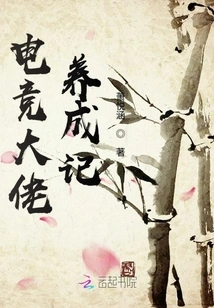 电竞大佬
养成记
著
云起书院